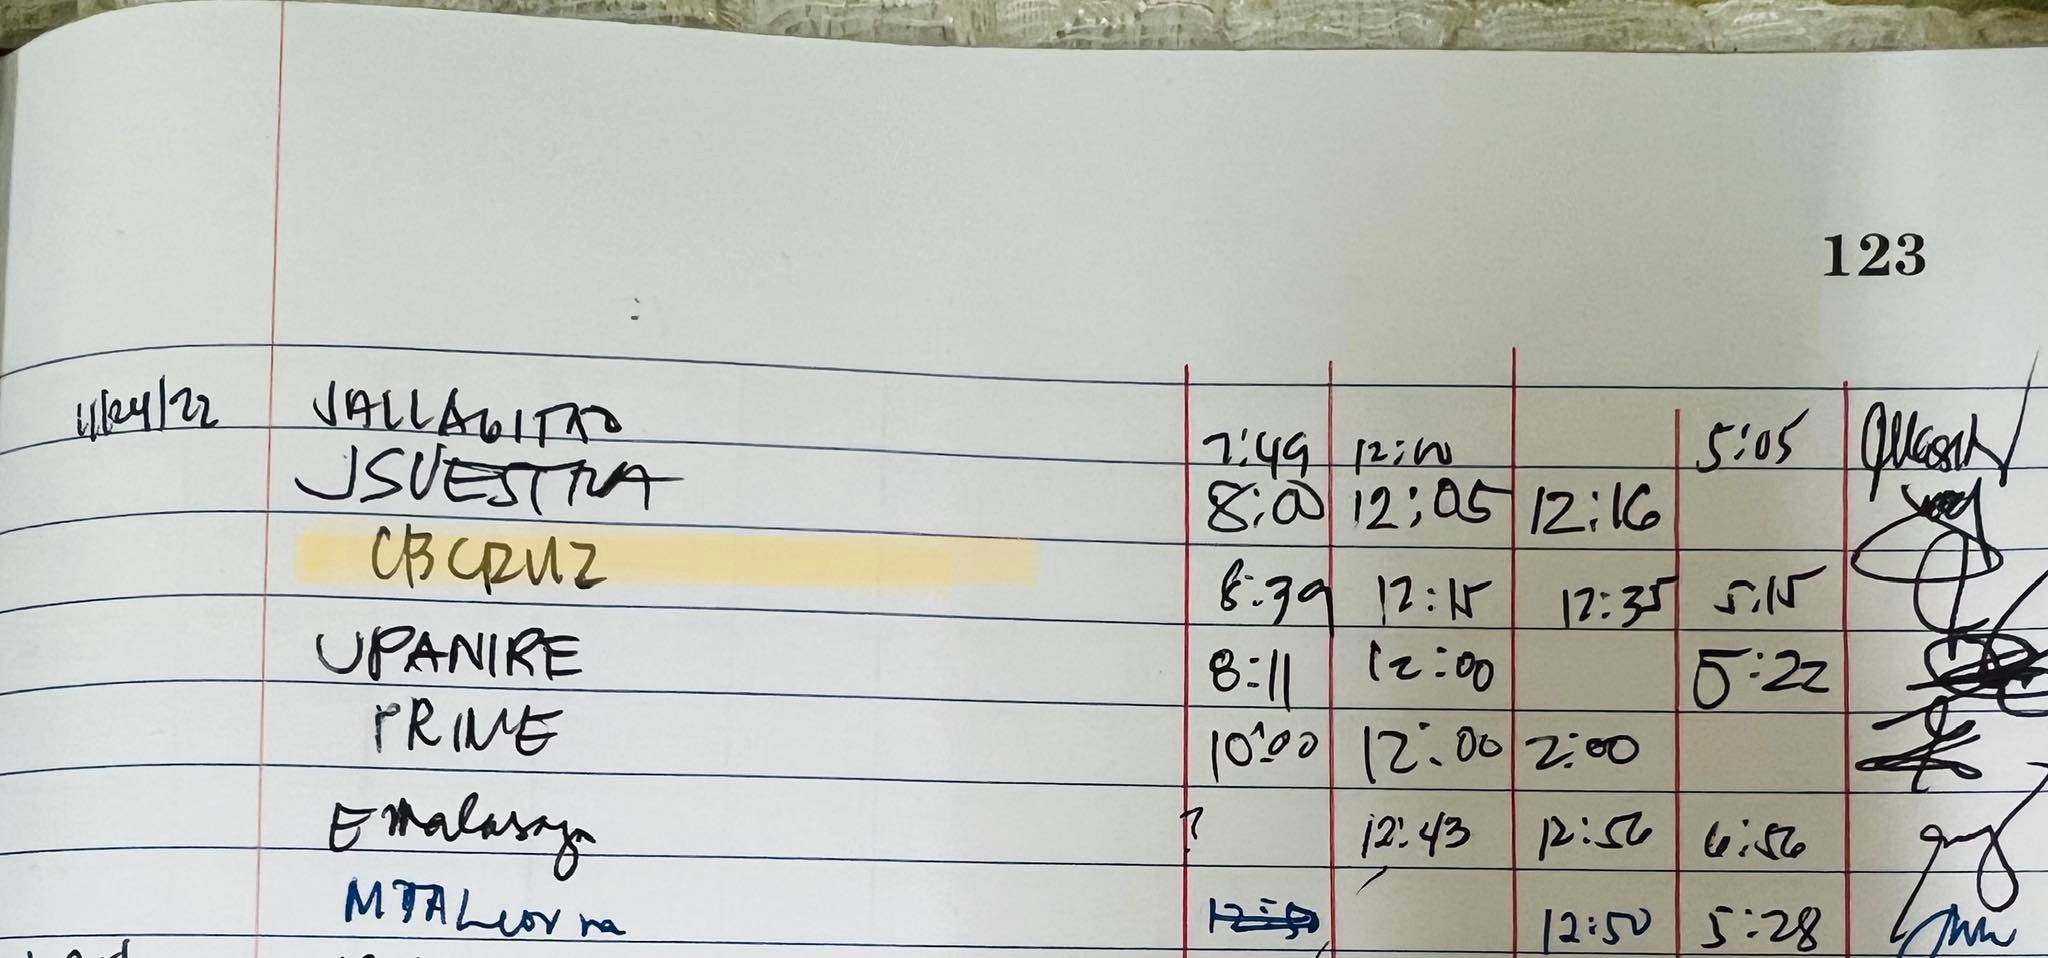 123
11/24/22 JALLAGITAO 7:49 12:00 5:05
JSUESTRA 8:00 12:05 12:16
CBCRUZ 8:39 12:15 12:35 5:15
UPANIRE 8:11 12:00 5:22
PRIME 10:00 12:00 2:00
EMalasaga ? 12:43 12:56 6:56
MTALcorna 12:50 5:28